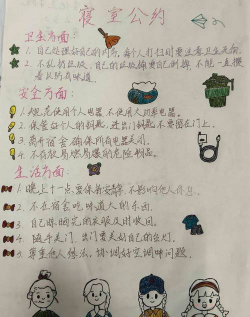 寝室公约
卫生方面：
1. 自己处理好自己的内务，每个人打扫时要注意卫生死角
2. 不乱扔垃圾，自己的垃圾桶要自己倒掉，不能一直
着从所有味道
安全方面：
1. 规范使用个人电器，不使用大功率电器。
2. 保管好个人的钥匙，进出门钥匙不要留在门上。
3. 离开宿舍确保所有电器关闭。
4. 不存放易燃易爆的危险物品。
生活方面：
1. 晚上十一点要保持安静，不影响他人作息
2. 不在宿舍吃味道大的东西。
3. 自己晾晒完的衣服及时收回。
4. 随手关门，出门要关好自己的台灯。
5. 尊重他人想法，协调好空调等问题。